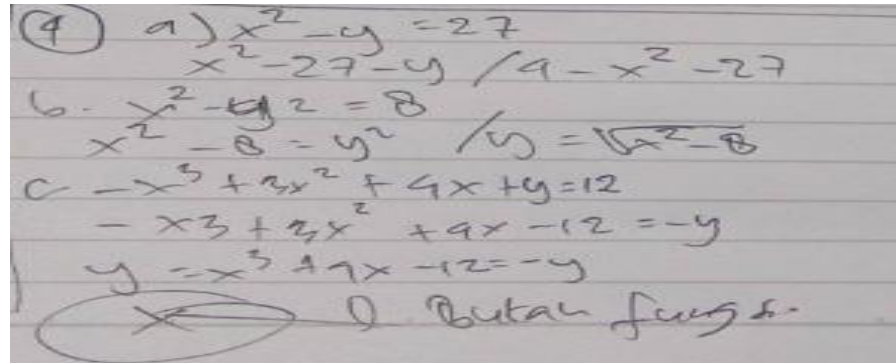 ④ a) x² - y = 27
x² - 27 - y / 4 - x² - 27
b. x² - y2 = 8
x² - 8 = y² / y = √x² - 8
c - x³ + 3x² + 4x + y = 12
- x3 + 3x² + 4x - 12 = -y
y = x³ + 4x - 12 = -y
x Bukan fungsi.